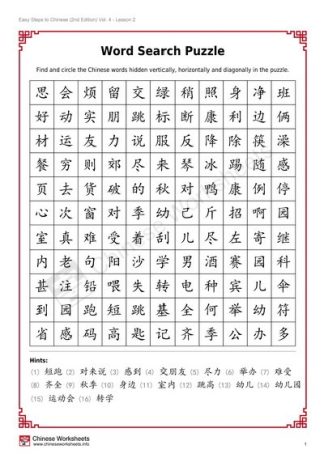 Easy Steps to Chinese (2nd Edition) Vol. 4 - Lesson 2
Word Search Puzzle
Find and circle the Chinese words hidden vertically, horizontally and diagonally in the puzzle.
思 会 烦 留 交 绿 稍 照 身 净 班
好 动 实 朋 跳 标 断 康 利 边 俩
材 运 友 力 说 服 反 降 除 筷 澡
餐 穷 则 郊 尽 来 琴 冰 踢 随 感
页 去 货 破 的 秋 对 鸭 康 例 停
心 次 窗 对 季 幼 己 斤 招 啊 园
室 真 难 受 着 刮 儿 尽 左 寄 继
内 老 句 阳 沙 学 男 酒 赛 园 科
甚 注 铅 喂 失 转 电 种 宾 儿 伞
到 园 跑 短 跳 基 全 何 举 幼 符
省 感 码 高 匙 记 齐 季 公 办 多
Hints:
(1) 短跑 (2) 对来说 (3) 感到 (4) 交朋友 (5) 尽力 (6) 举办 (7) 难受
(8) 齐全 (9) 秋季 (10) 身边 (11) 室内 (12) 跳高 (13) 幼儿 (14) 幼儿园
(15) 运动会 (16) 转学
Chinese Worksheets
www.chineseworksheets.info
1